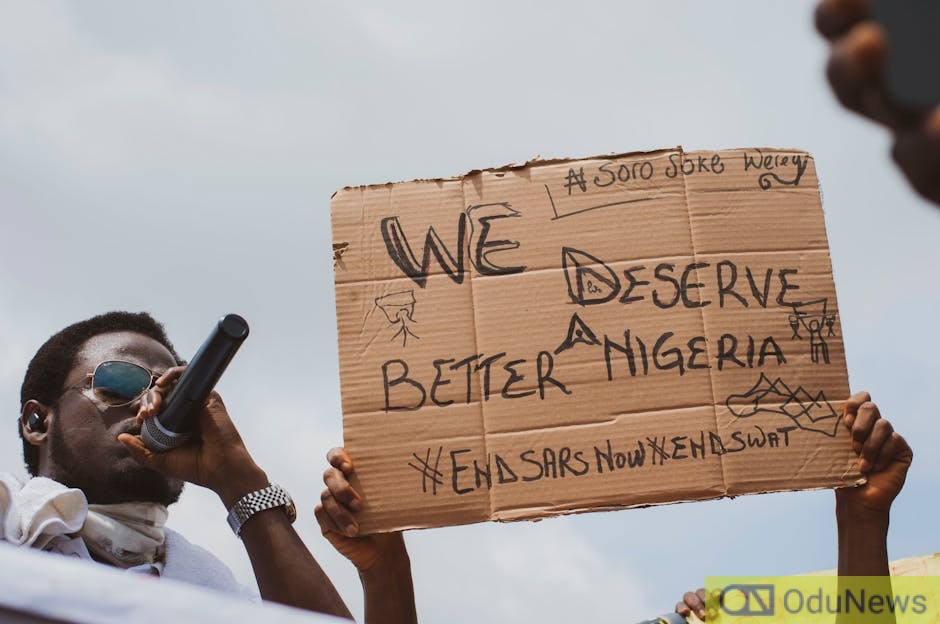 # Soro Soke Werey
WE
DESERVE
BETTER A NIGERIA
#ENDSARS NOW #ENDSWAT
ON OduNews